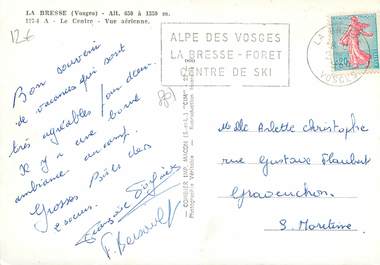 LA BRESSE (Vosges) - Alt. 650 à 1350 m.
1274 A - Le Centre - Vue aérienne.
12€
ALPE DES VOSGES
LA BRESSE - FORET
CENTRE DE SKI
LA
VOSGES
0,20
Bon souvenir
de vacances qui sont
très agréables pour deux.
Il y a une bonne
ambiance au camp.
Grosses bises des
Françoise
F.
801
COMBIER IMP. MACON (S.-&-L.) "CIM"
Photographie Véritable - Reproduction
Mlle Arlette Christophe
rue Gustave Flaubert
Gravenchon
S. Maritime